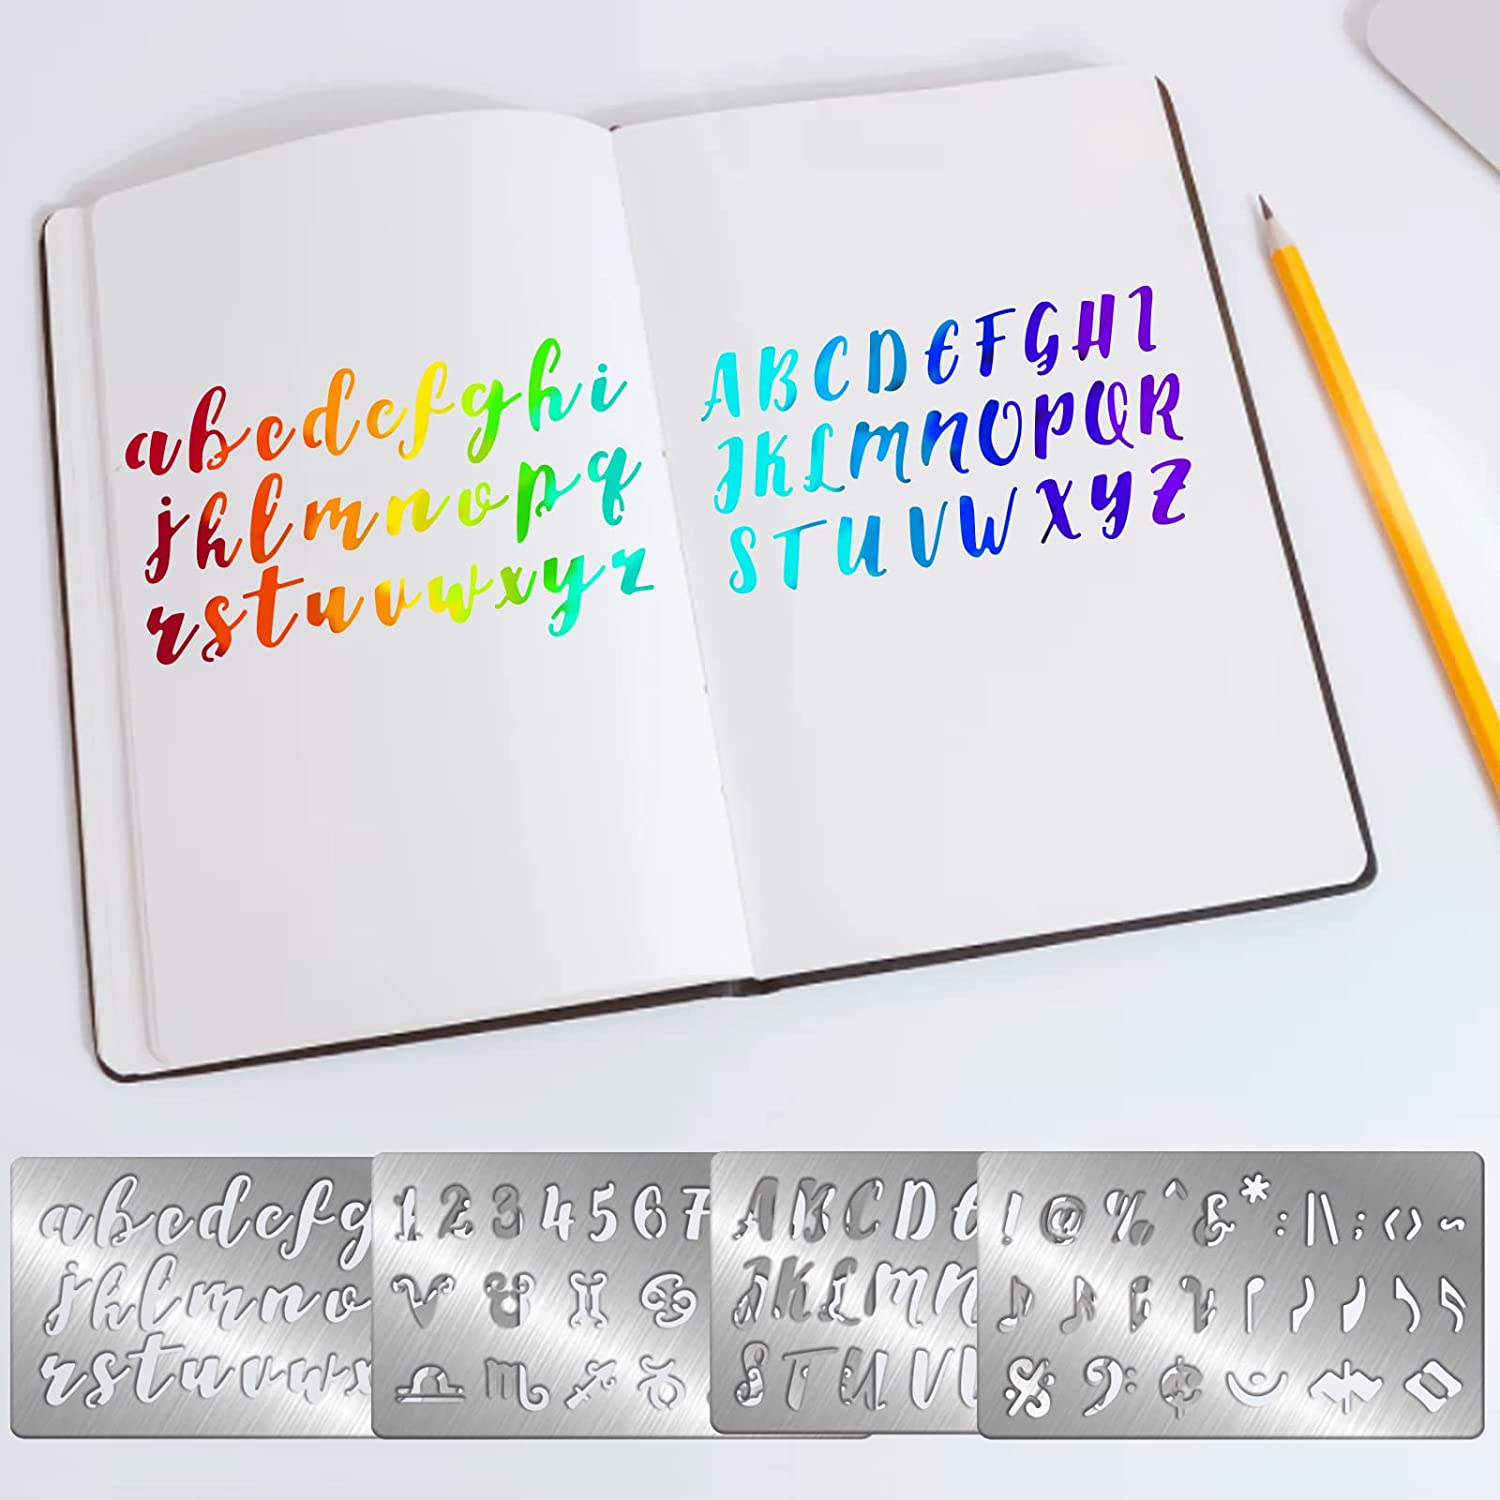 abcdefghi
jklmnopq
rstuvwxyz
ABCDEFGHI
JKLMNOPQR
STUVWXYZ
abcdefg
jklmno
rstuvwx
1234567
♈♉♊♋
♎♏♐♉
ABCDE
JKLMN
STUVW
!@%^&*:|\;<>~